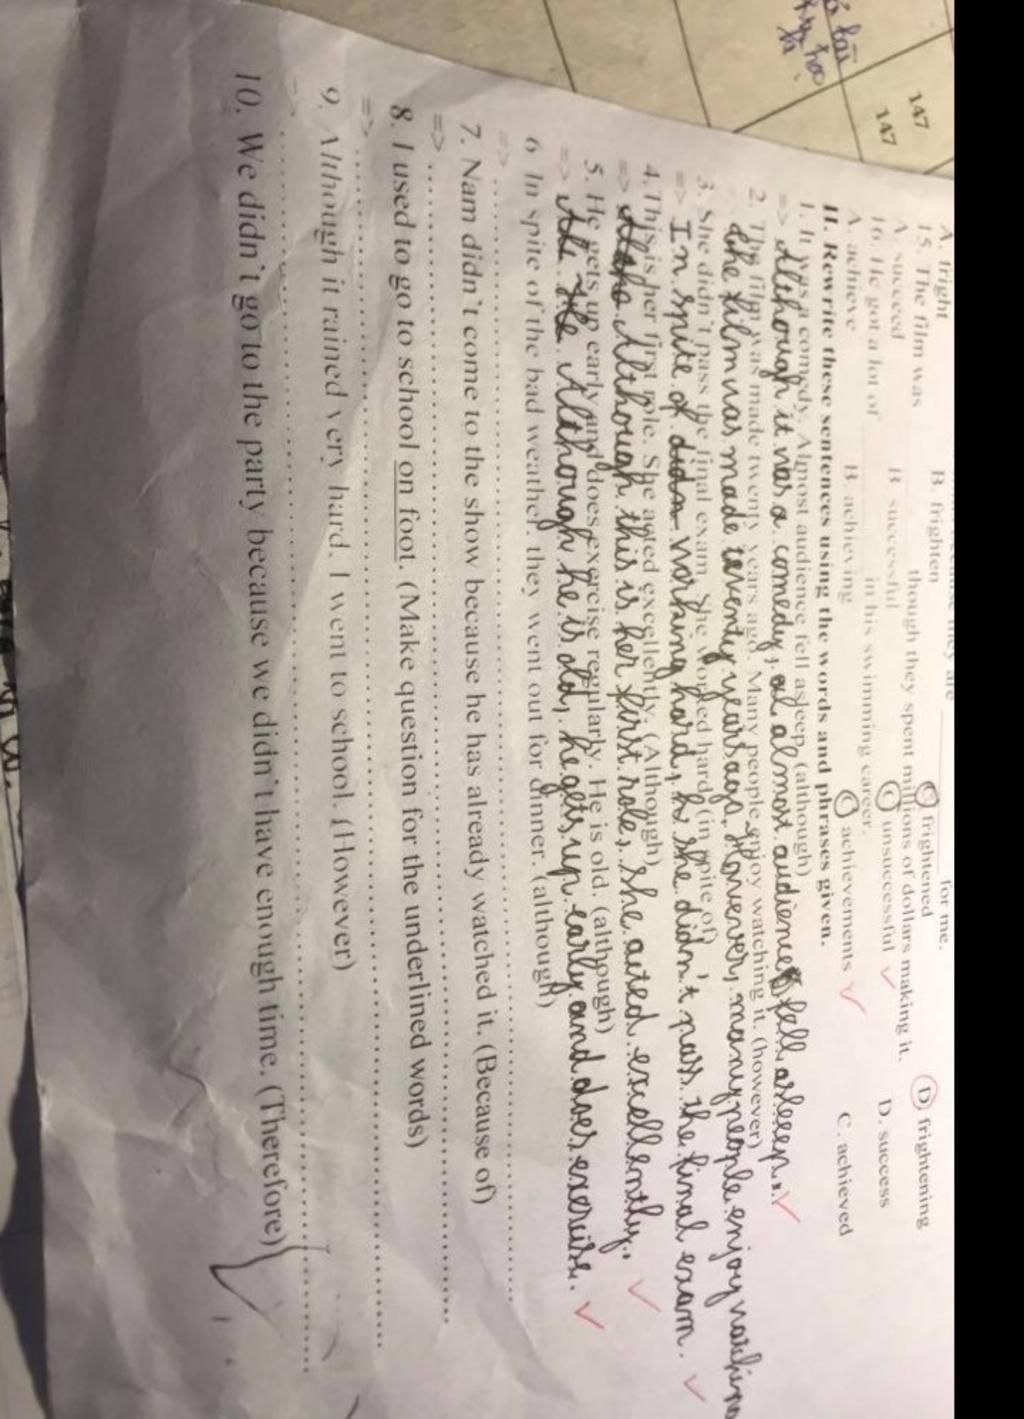 147
147
A. fright B. frighten C. frightened D. frightening
for me.
15. The film was though they spent millions of dollars making it.
A. succeed B. successful C. unsuccessful D. success
16. He got a lot of in his swimming career.
A. achieve B. achieving C. achievements C. achieved
II. Rewrite these sentences using the words and phrases given.
1. It was a comedy. Almost audience fell asleep. (although)
=> Although it was a comedy, al almost audience fell asleeep.
2. The film was made twenty years ago. Many people enjoy watching it. (however)
The film was made tewenty years ago. However, many people enjoy
3. She didn't pass the final exam. She worked hard. (in spite of)
=> In spite of didn working hard, he she didn't pass the final exam.
4. This is her first role. She acted excellently. (Although)
=> Although this is her first role, she acted excellently.
5. He gets up early and does exercise regularly. He is old. (although)
=> Although he is old, he gets up early and does exercise.
6 In spite of the bad weather, they went out for dinner. (although)
=>
7. Nam didn't come to the show because he has already watched it. (Because of)
=>
8. I used to go to school on foot. (Make question for the underlined words)
=>
9. Although it rained very hard, I went to school. (However)
=>
10. We didn't go to the party because we didn't have enough time. (Therefore)